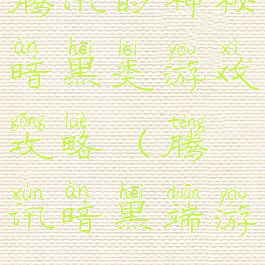 腾讯的神秘
àn hēi lèi yóu xì
暗黑类游戏
gōng lüè téng
攻略（腾
xùn àn hēi duān yóu
讯暗黑端游